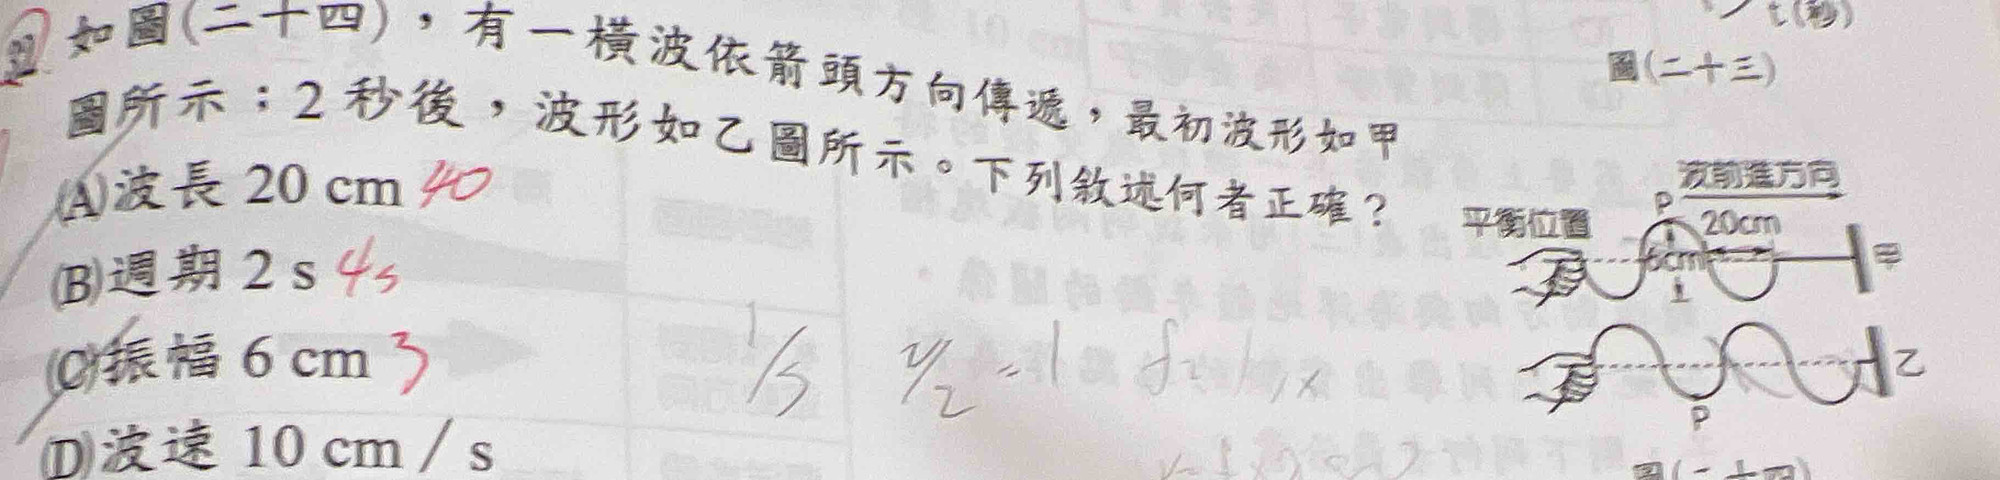 32. 如圖(二十四)，有一橫波依箭頭方向傳遞，最初波形如甲
圖所示：2秒後，波形如乙圖所示。下列敘述何者正確？
(A)波長 20 cm 40
(B)週期 2 s 4s
(C)振幅 6 cm 3
(D)波速 10 cm / s
t(秒)
圖(二十三)
波前進方向
平衡位置
P
20cm
6cm
甲
乙
P
圖(二十四)